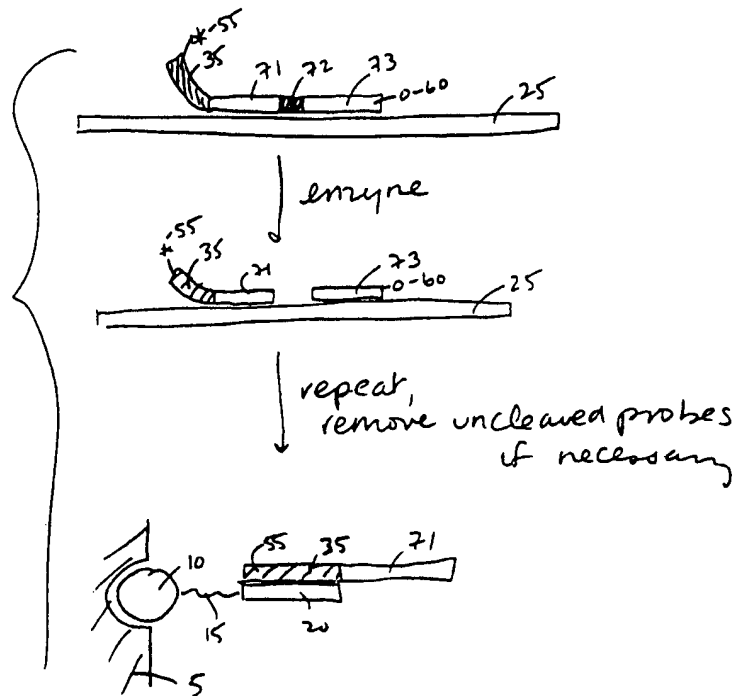 *-55
35 71 72 73
0-60
25
enzyne
*-55
35 71 73
0-60
25
repeat,
remove uncleaved probes
if necessary
10 55 35 71
15 20
5